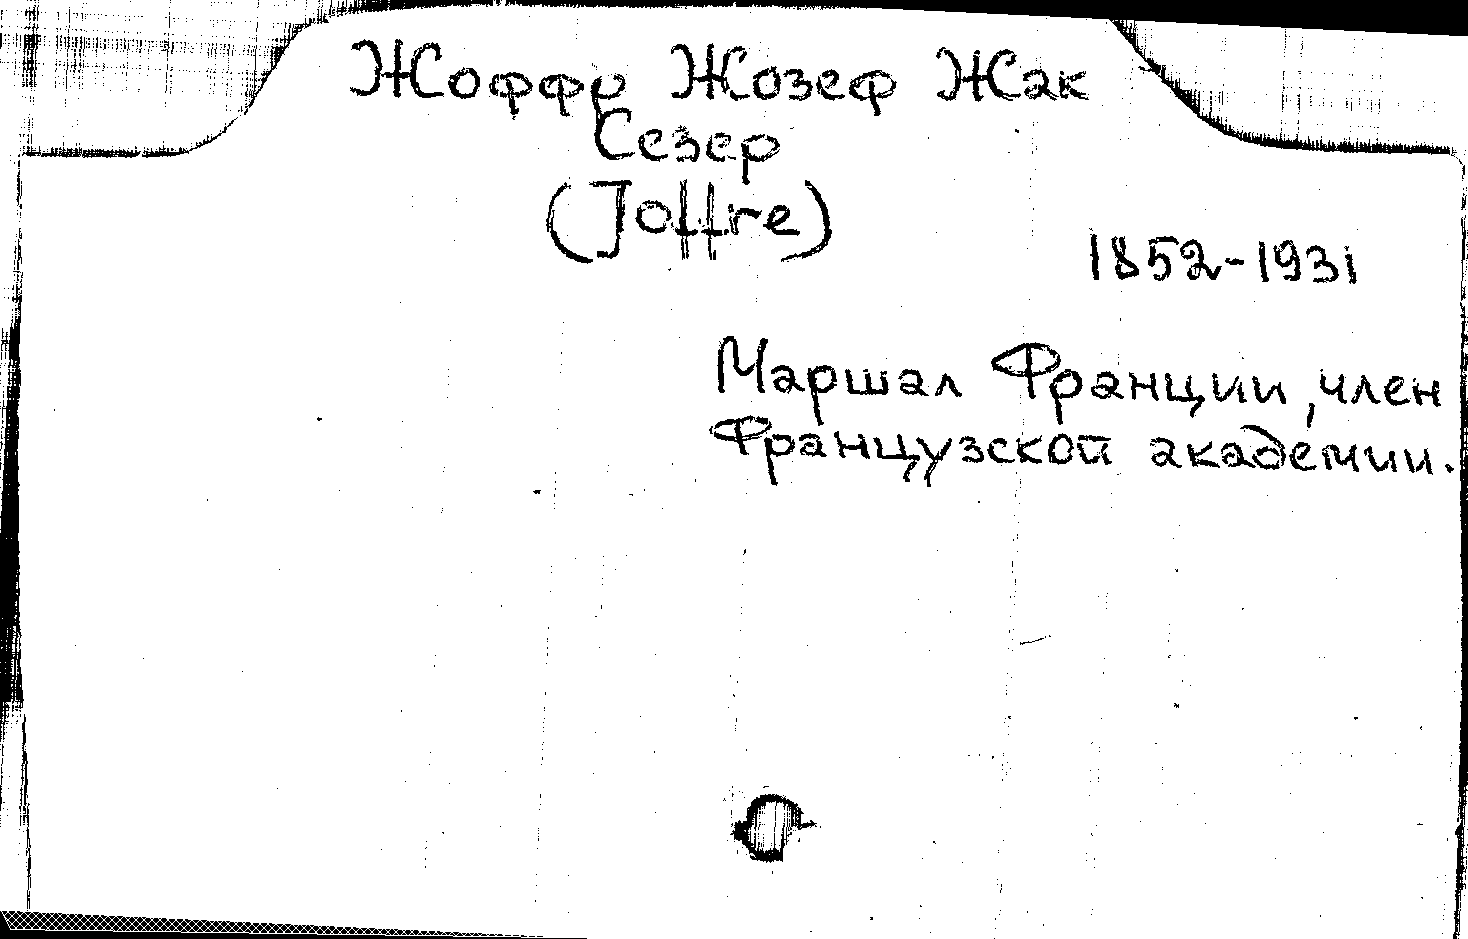 Жоффр Жозеф Жак
Сезер
(Joffre)
1852-1931
Маршал Франции, член
Французской академии.